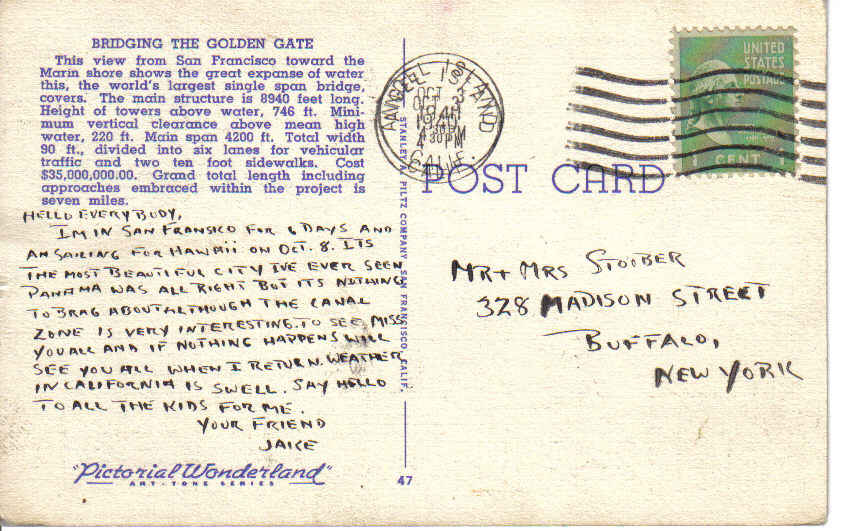 BRIDGING THE GOLDEN GATE
This view from San Francisco toward the
Marin shore shows the great expanse of water
this, the world's largest single span bridge,
covers. The main structure is 8940 feet long.
Height of towers above water, 746 ft. Mini-
mum vertical clearance above mean high
water, 220 ft. Main span 4200 ft. Total width
90 ft., divided into six lanes for vehicular
traffic and two ten foot sidewalks. Cost
$35,000,000.00. Grand total length including
approaches embraced within the project is
seven miles.
HELLO EVERYBODY,
I'M IN SAN FRANSICO FOR 6 DAYS AND
AM SAILING FOR HAWAII ON OCT. 8. ITS
THE MOST BEAUTIFUL CITY I'VE EVER SEEN
PANAMA WAS ALL RIGHT BUT ITS NOTHING
TO BRAG ABOUT ALTHOUGH THE CANAL
ZONE IS VERY INTERESTING. TO SEE MISS
YOU ALL AND IF NOTHING HAPPENS WILL
SEE YOU ALL WHEN I RETURN. WEATHER
IN CALIFORNIA IS SWELL. SAY HELLO
TO ALL THE KIDS FOR ME.
YOUR FRIEND
JAKE
"Pictorial Wonderland"
ART-TONE SERIES
STANLEY A. PILTZ COMPANY, SAN FRANCISCO, CALIF.
47
ANGEL ISLAND
OCT
3
4 30 PM
CALIF.
UNITED
STATES
POSTAGE
1 CENT 1
POST CARD
MR + MRS STOOBER
328 MADISON STREET
BUFFALO,
NEW YORK